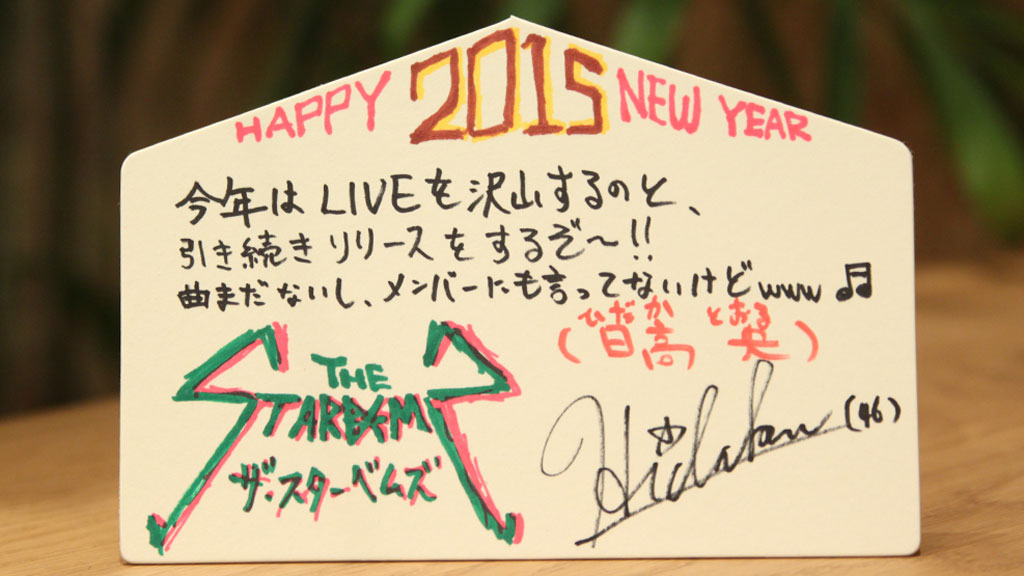 HAPPY 2015 NEW YEAR
今年は LIVEを沢山するのと、
引き続き リリースをするぞ〜!!
曲まだないし、メンバーにも言ってないけどwww ♫
ひだか とおる
(日高 央)
THE
STARBEMS
ザ・スターベムズ
Hidakan (46)